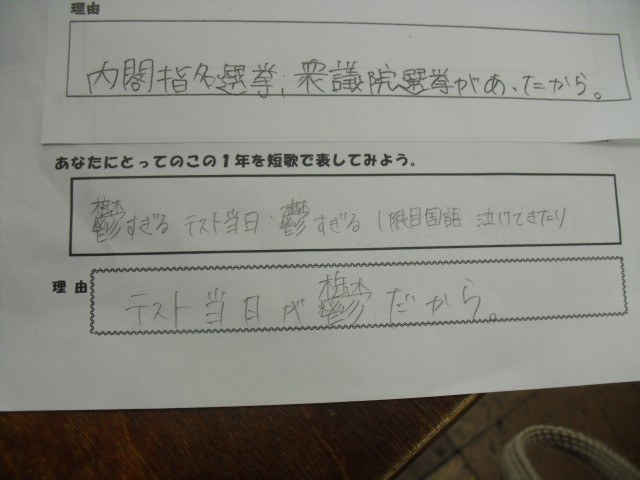 理由
内閣指名選挙、衆議院選挙があったから。
あなたにとってのこの1年を短歌で表してみよう。
鬱すぎる テスト当日 鬱すぎる 1限目国語 泣けてきたり
理由
テスト当日が鬱だから。